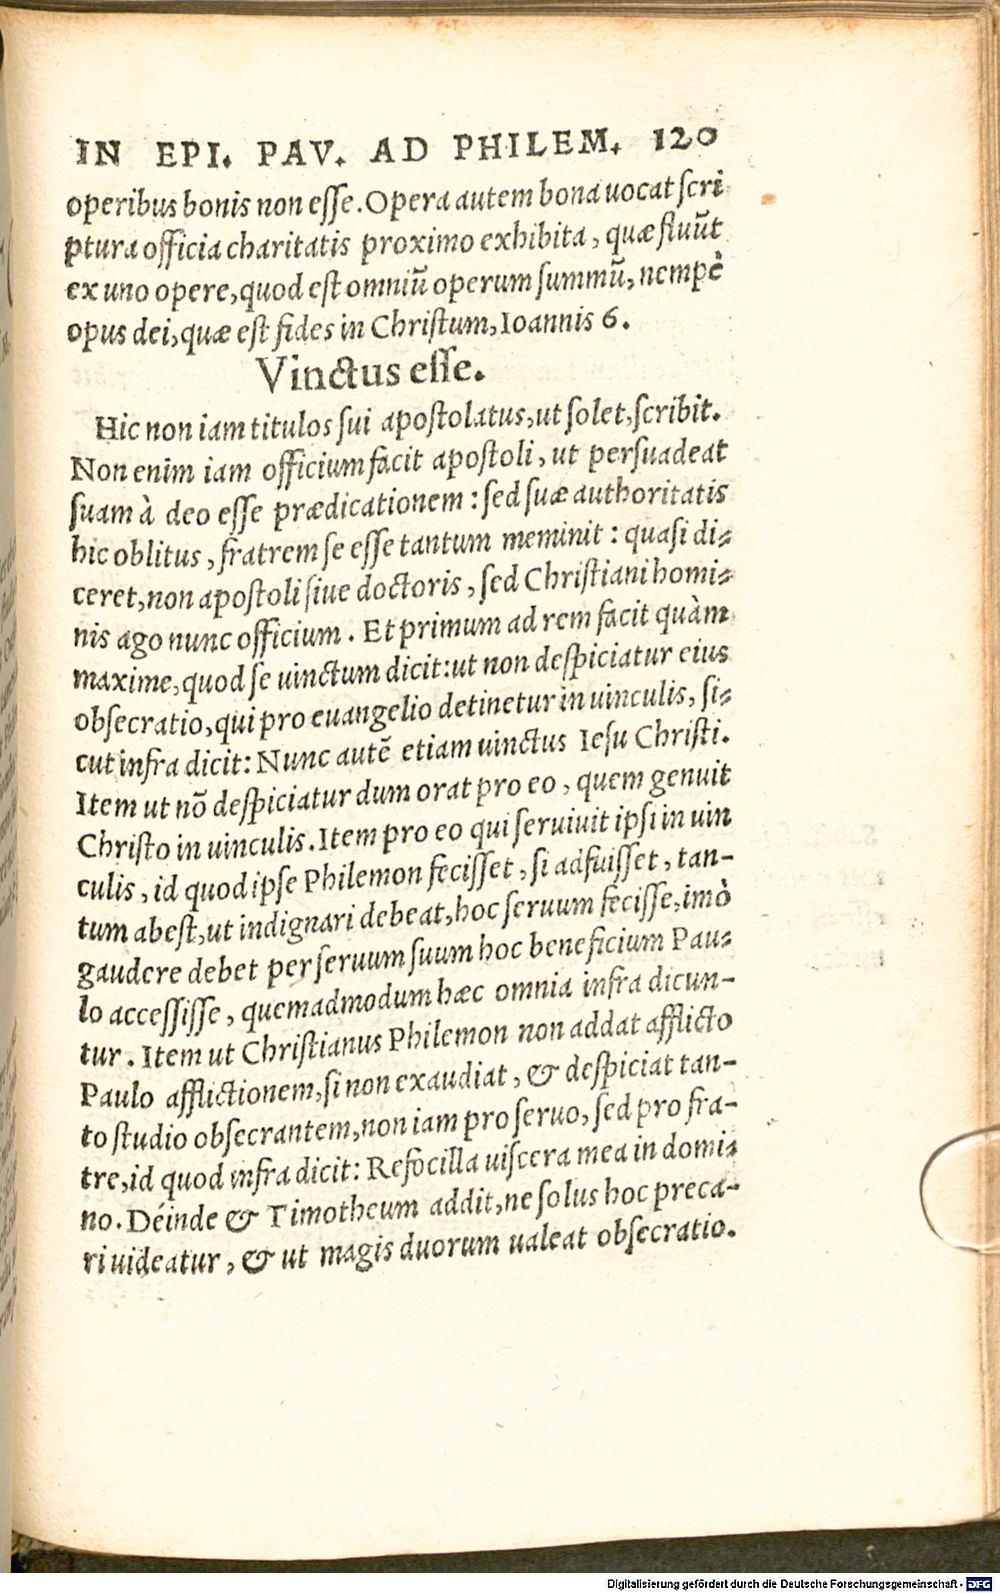 IN EPI. PAV. AD PHILEM. 120
operibus bonis non esse. Opera autem bona uocat scri
ptura officia charitatis proximo exhibita, quæ fluũt
ex uno opere, quod est omniũ operum summũ, nempè
opus dei, quæ est fides in Christum, Ioannis 6.
Vinctus esse.
Hic non iam titulos sui apostolatus, ut solet, scribit.
Non enim iam officium facit apostoli, ut persuadeat
suam à deo esse prædicationem: sed suæ authoritatis
hic oblitus, fratrem se esse tantum meminit: quasi di⸗
ceret, non apostoli siue doctoris, sed Christiani homi⸗
nis ago nunc officium. Et primum ad rem facit quàm
maxime, quod se uinctum dicit: ut non despiciatur eius
obsecratio, qui pro euangelio detinetur in uinculis, si⸗
cut infra dicit: Nunc autẽ etiam uinctus Iesu Christi.
Item ut nõ despiciatur dum orat pro eo, quem genuit
Christo in uinculis. Item pro eo qui seruiuit ipsi in uin
culis, id quod ipse Philemon fecisset, si adfuisset, tan-
tum abest, ut indignari debeat, hoc seruum fecisse, imò
gaudere debet per seruum suum hoc beneficium Pau⸗
lo accessisse, quemadmodum hæc omnia infra dicun-
tur. Item ut Christianus Philemon non addat afflicto
Paulo afflictionem, si non exaudiat, & despiciat tan-
to studio obsecrantem, non iam pro seruo, sed pro fra-
tre, id quod infra dicit: Refocilla uiscera mea in domi⸗
no. Déinde & Timotheum addit, ne solus hoc preca-
ri uideatur, & ut magis duorum ualeat obsecratio.
Digitalisierung gefördert durch die Deutsche Forschungsgemeinschaft - DFG